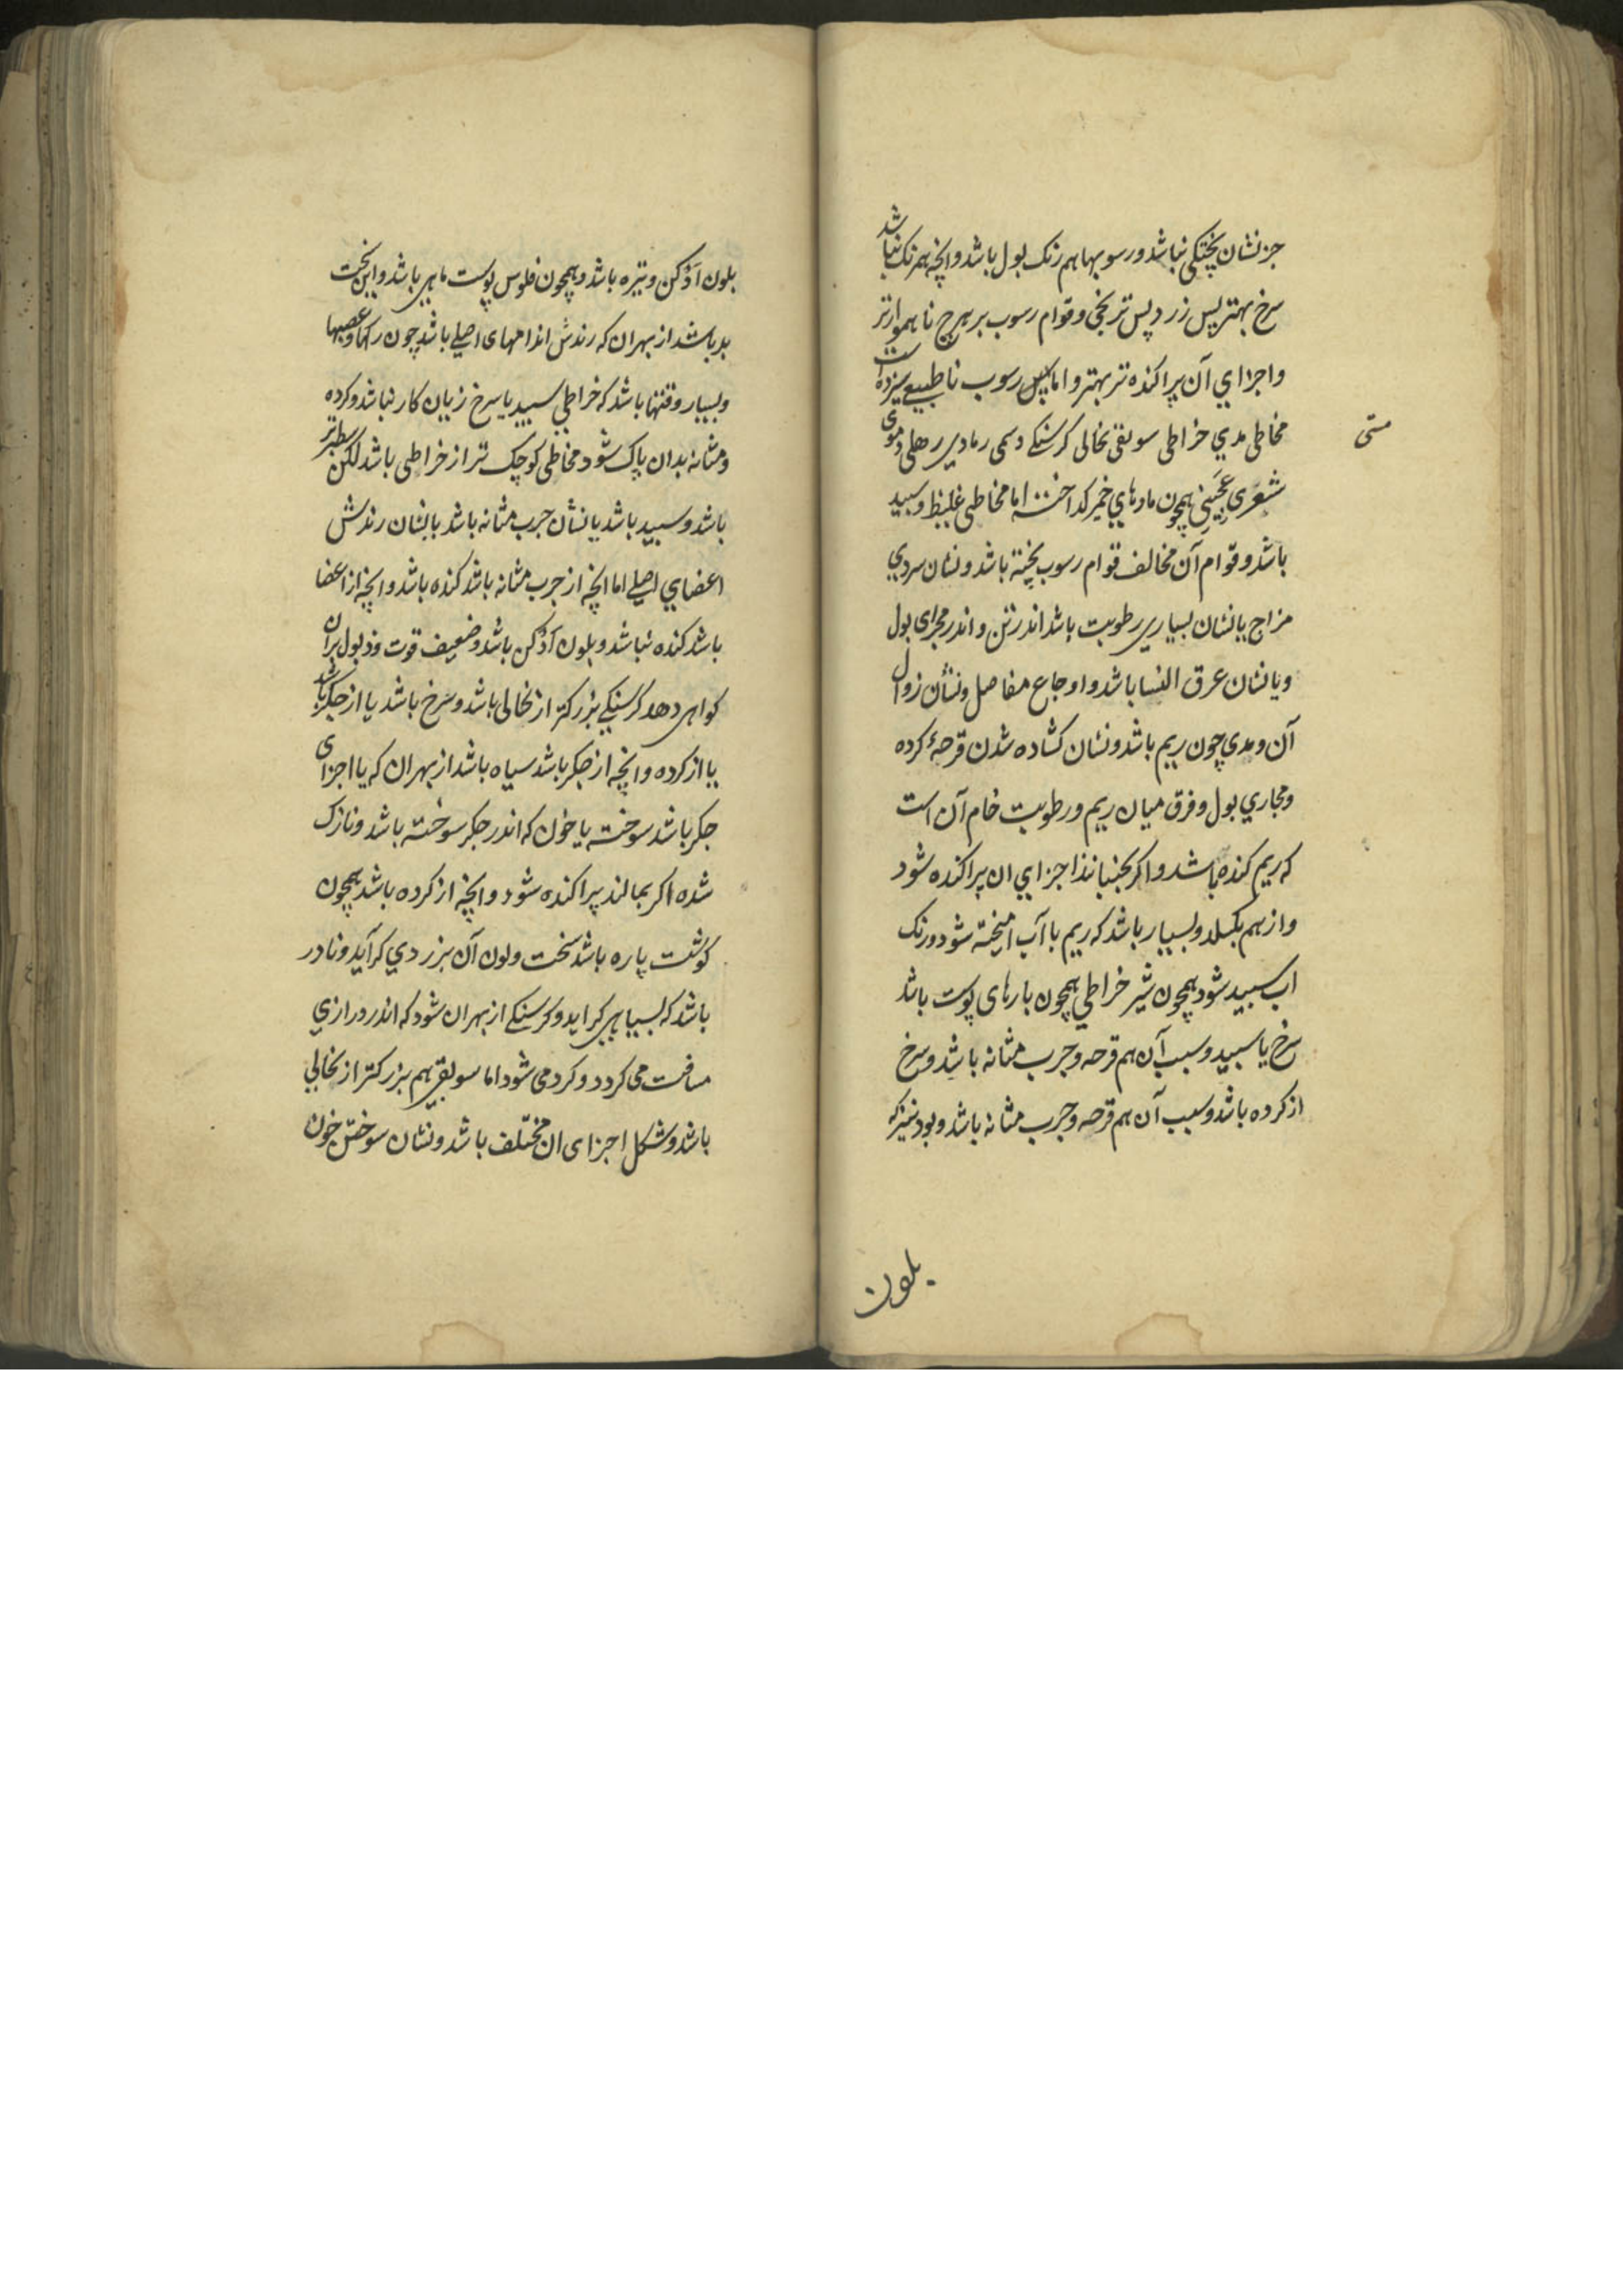 جز نشان پختکی نباشد و رسوبها هم رنک بول باشد و انچه همرنک نباشد
سرخ بهتر پس زرد پس ترنجی و قوام رسوب بر هرچ ناهموارتر
و اجزاي آن پراکنده تر بهتر و اما رسوب ناطبیعی سیزده است
مخاطی مدي خراطی سویقی نخالی کرسنکے دسمی رمادي رملی دموی
شعری عجینی همچون مادهاي خمیر کداخته اما مخاطی غلیظ و سبید
باشد و قوام آن مخالف قوام رسوب پخته باشد و نشان سردي
مزاج یا نشان بسیاري رطوبت باشد اندر تن و اندر مجرای بول
و یا نشان عرق النسا باشد و اوجاع مفاصل و نشان زوال
آن و مدي چون ریم باشد و نشان کشاده شدن قرحهٔ کرده
و مجاري بول و فرق میان ریم و رطوبت خام آن است
که ریم کنده باشد و اکر بجنبانند اجزاي ان پراکنده شود
و از هم بکسلد و بسیار باشد که ریم با آب امیخته شود و رنک
اب سبید شود همچون شیر خراطي همچون بارهای پوست باشد
سرخ یا سبید و سبب آن هم قرحه و جرب مثانه باشد و سرخ
از کرده باشد و سبب آن هم قرحه و جرب مثانه باشد و بود نیز که
بلون
بلون اَدْکن و تیره باشد و همچون فلوس پوست ماهي باشد و این سخت
بد باشد از بهران که رندش اندامهای اصلے باشد چون رکها و عصبها
و بسیار وقتها باشد که خراطي سبید یا سرخ زیان کار نباشد و کرده
و مثانه بدان پاک شود مخاطی کوچک تر از خراطی باشد لکن سطبرتر
باشد و سبید باشد یا نشان جرب مثانه باشد یا نشان رندش
اعضاي اصلے اما انچه از جرب مثانه باشد کنده باشد و انچه از اعضا
باشد کنده نباشد و بلون اَدْکن باشد و ضعیف قوت و ذبول بران
کواهی دهد کرسنکے بزرکتر از نخالی باشد و سُرخ باشد یا از جکر باشد
یا از کرده و انچه از جکر باشد سیاه باشد از بهران که یا اجزای
جکر باشد سوخته یا خون که اندر جکر سوخته باشد و نازک
شده اکر بمالند پراکنده شود و انچه از کرده باشد همچون
کوشت پاره باشد سخت و لون آن بزردي کراید و نادر
باشد که بسیاهي کراید و کرسنکے از بهران شود که اندر درازي
مسافت می کردد و کرد می شود اما سویقی هم بزرکتر از نخالي
باشد و شکل اجزای ان مختلف باشد و نشان سوختن خون